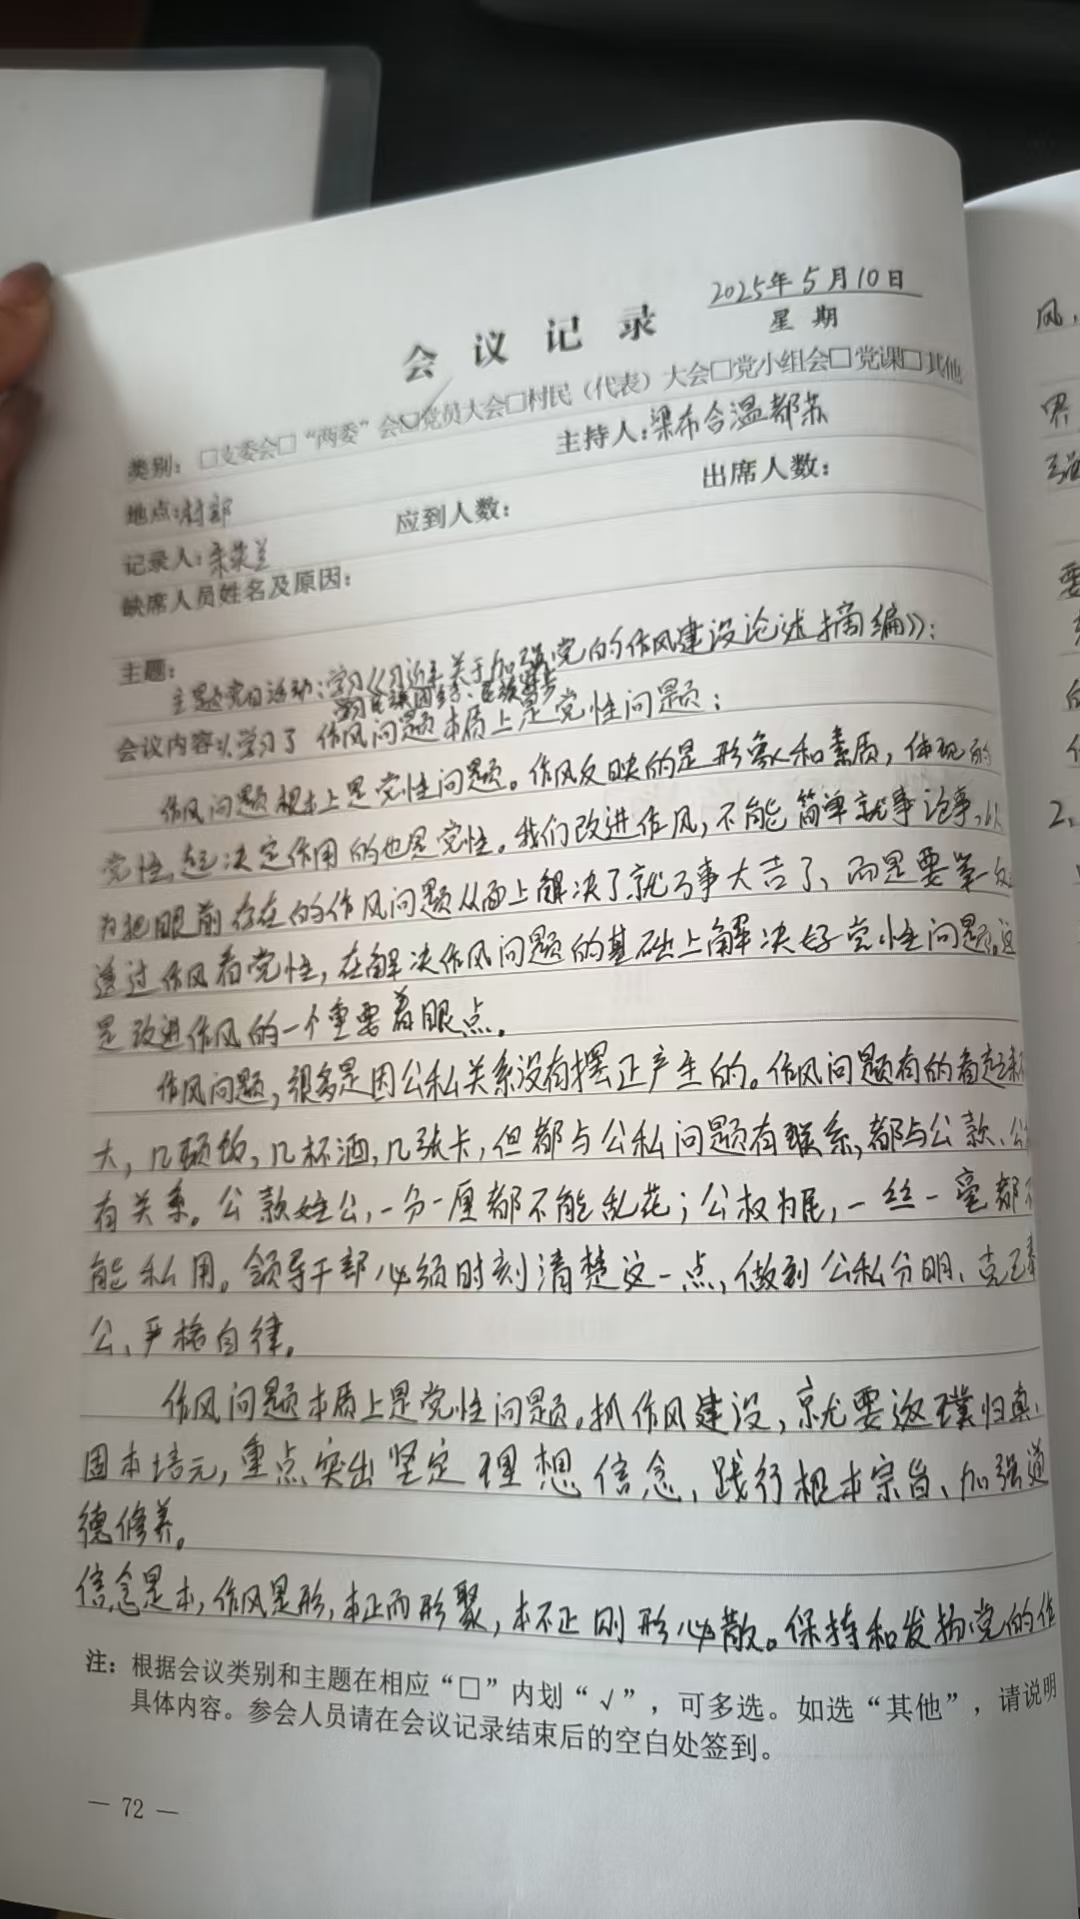 2025年5月10日
会议记录
星期
类别：□支委会□“两委”会☑党员大会□村民（代表）大会□党小组会□党课□其他
地点：村部 主持人：梁布合温都苏
记录人： 应到人数： 出席人数：
缺席人员姓名及原因：
主题：
主题党日活动：学习《习近平关于加强党的作风建设论述摘编》：
学习民族团结、民族
会议内容：学习了 作风问题本质上是党性问题：
作风问题根本上是党性问题。作风反映的是形象和素质，体现的
党性，起决定作用的也是党性。我们改进作风，不能简单就事论事、以
为把眼前存在的作风问题从面上解决了就万事大吉了、而是要举一反
透过作风看党性，在解决作风问题的基础上解决好党性问题，这
是改进作风的一个重要着眼点。
作风问题，很多是因公私关系没有摆正产生的。作风问题有的看起来不
大，几顿饭，几杯酒，几张卡，但都与公私问题有联系，都与公款、公
有关系。公款姓公，一分一厘都不能乱花；公权为民，一丝一毫都不
能私用。领导干部必须时刻清楚这一点，做到公私分明、克己奉
公、严格自律。
作风问题本质上是党性问题。抓作风建设，就要返璞归真、
固本培元，重点突出坚定理想信念、践行根本宗旨、加强道
德修养。
信念是本，作风是形，本正而形聚，本不正则形必散。保持和发扬党的作
注：根据会议类别和主题在相应“□”内划“√”，可多选。如选“其他”，请说明
具体内容。参会人员请在会议记录结束后的空白处签到。
— 72 —
风，
界
要
的
2、